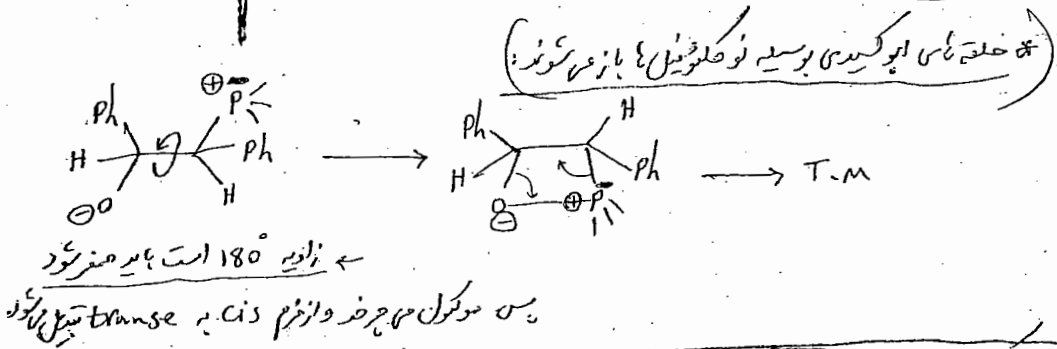 * حلقه های اپوکسیدی بوسیله نوکلئوفیل ها باز می شوند:
Ph ⊕ P Ph H H ⊖ O
Ph H Ph H O ⊖ ⊕ P
T.M
← زاویه 180° است باید صفر شود
پس مولکول می چرخد و از فرم cis به transe تبدیل می شود